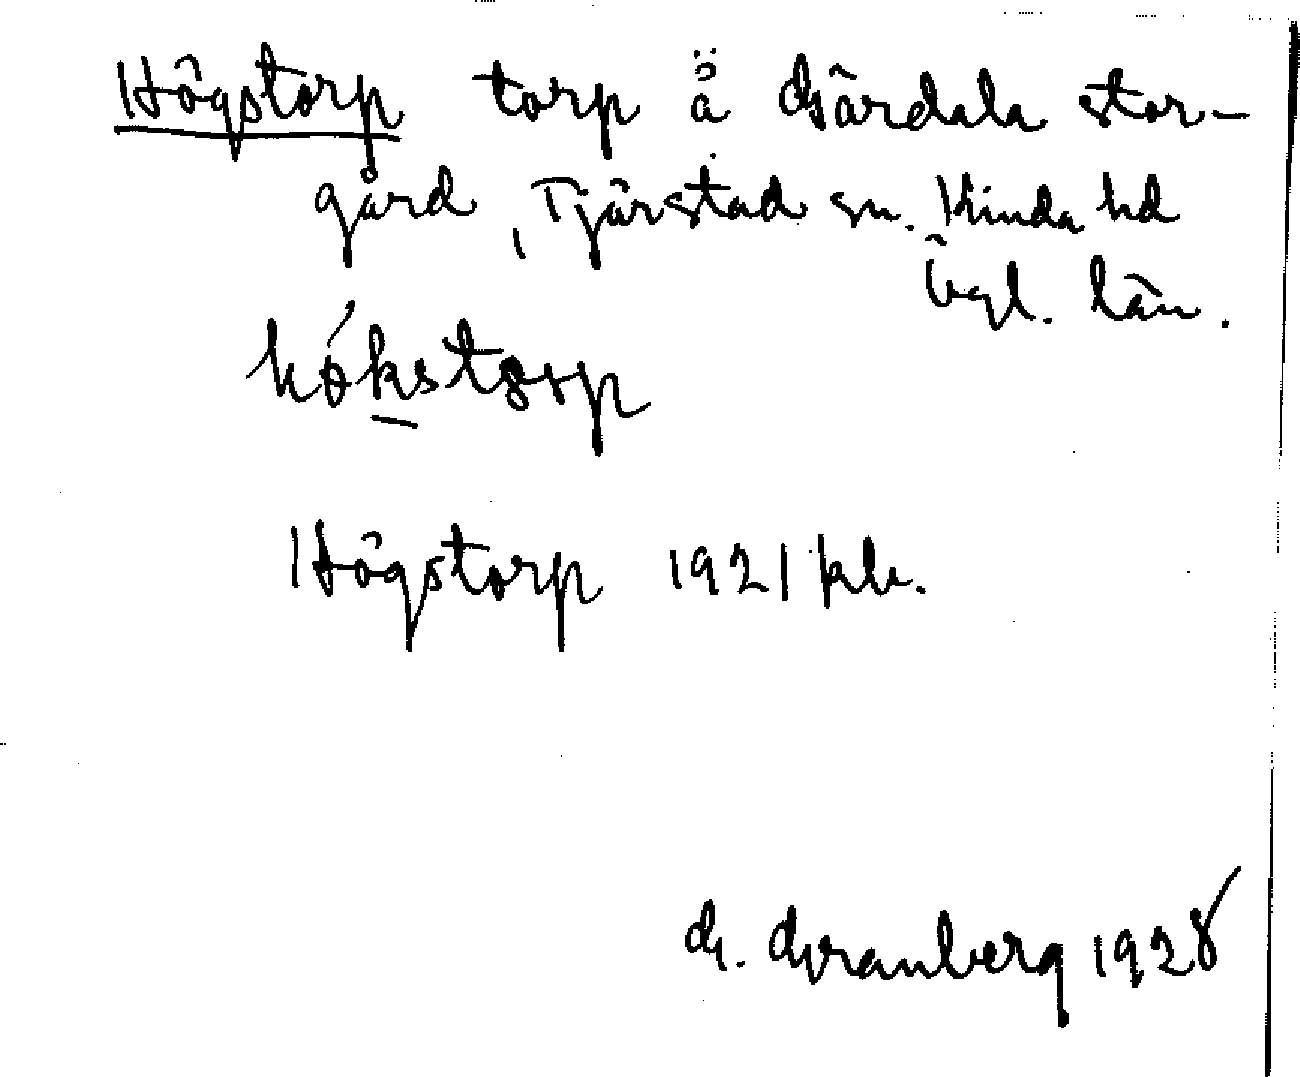 Högstorp torp å Gärdala stor-
gård, Tjärstad sn. Kinda hd
Ögl. län.
hókstorp
Högstorp 1921 kb.
G. Granberg 1928